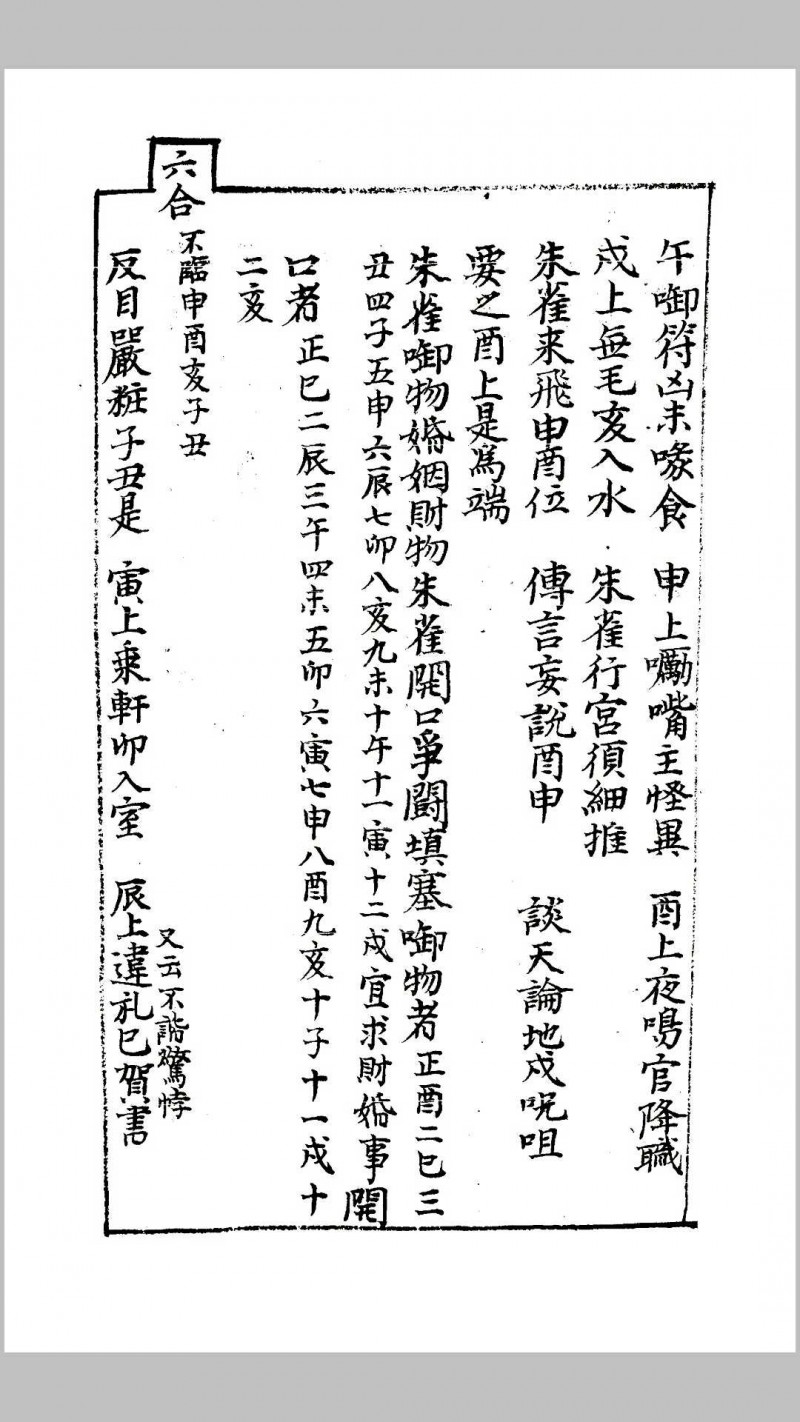 午啣符凶未喙食　申上囑嘴主怪異　酉上夜鳴官降職
戍上無毛亥入水　朱雀行宮須細推
朱雀来飛申酉位　傳言妄說酉申　談天論地戍呪咀
要之酉上是爲端
朱雀啣物婚姻財物朱雀開口爭鬪填塞啣物者正酉二巳三
丑四子五申六辰七卯八亥九未十午十一寅十二戍宜求財婚事開
口者正巳二辰三午四未五卯六寅七申八酉九亥十子十一戍十
二亥
六合
不臨申酉亥子丑
又云不諧驚悖
反目嚴粧子丑是　寅上乗軒卯入室　辰上違礼巳賀書